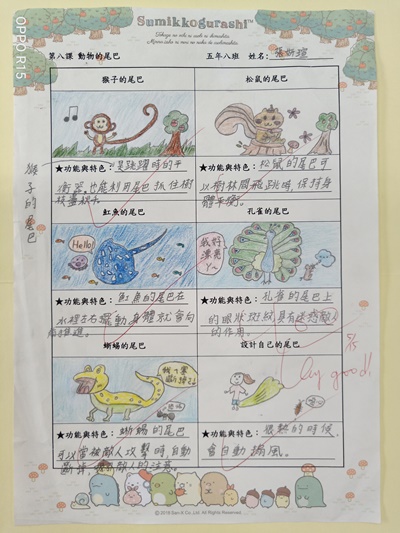 Sumikkogurashi™
第八課 動物的尾巴
五年八班 姓名:
猴子的尾巴
松鼠的尾巴
猴子的尾巴
★功能與特色:是跳躍時的平
衡器,也能利用尾巴抓住樹
★功能與特色:松鼠的尾巴可
以樹林間飛跳時,保持身
體平衡。
魟魚的尾巴
孔雀的尾巴
Hello!
我好
漂亮
ㄚ~
★功能與特色:魟魚的尾巴在
水裡左右擺動,身體就會向
前推進。
★功能與特色:孔雀的尾巴上
的眼狀斑紋具有迷惑敵人
的作用。
蜥蜴的尾巴
設計自己的尾巴
Very good!
★功能與特色:蜥蜴的尾巴
可以當被敵人攻擊時,自動
斷掉,敵人的注意。
★功能與特色:很熱的時候,
會自動搧風。
OPPO R15